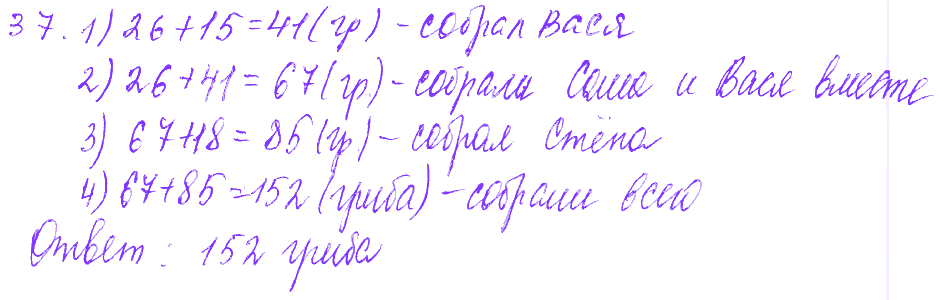 37. 1) 26+15=41(гр) - собрал Вася
2) 26+41=67(гр) - собрали Саша и Вася вместе
3) 67+18=85(гр) - собрал Стёпа
4) 67+85=152(гриба) - собрали всего
Ответ: 152 гриба